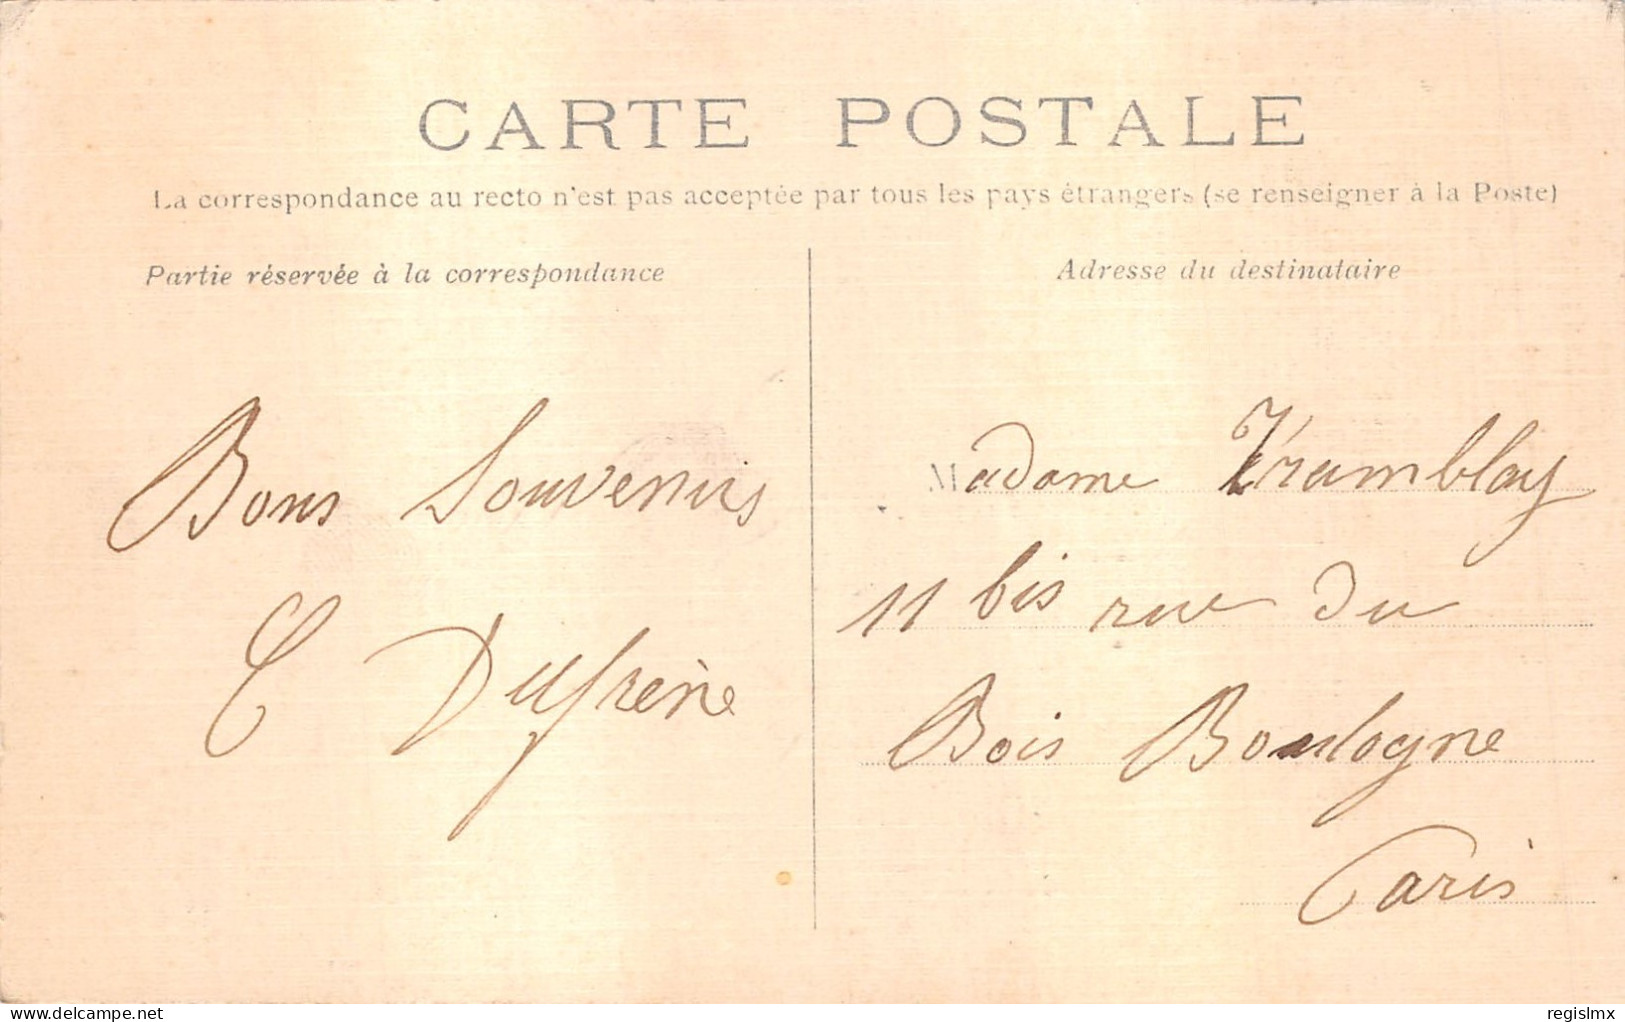 CARTE POSTALE
La correspondance au recto n'est pas acceptée par tous les pays étrangers (se renseigner à la Poste)
Partie réservée à la correspondance
Bons Souvenirs
C Dufrène
Adresse du destinataire
Madame Tramblay
11 bis rue du
Bois Boulogne
Paris
delcampe.net
regislmx